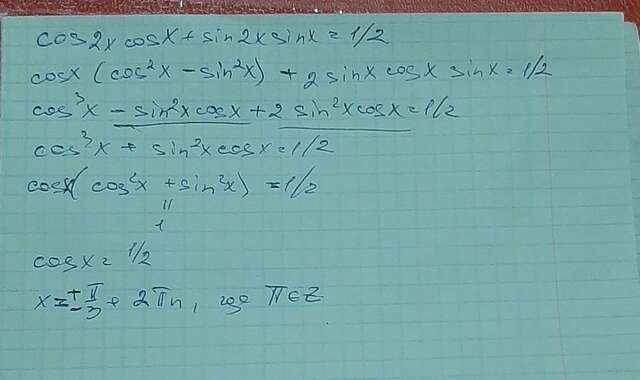 cos2x cosx + sin2x sinx = 1/2
cosx (cos²x - sin²x) + 2 sinx cosx sinx = 1/2
cos³x - sin²x cosx + 2 sin²x cosx = 1/2
cos³x + sin²x cosx = 1/2
cosx (cos²x + sin²x) = 1/2
"
1
cosx = 1/2
x = ± π/3 + 2πn, где π∈Z